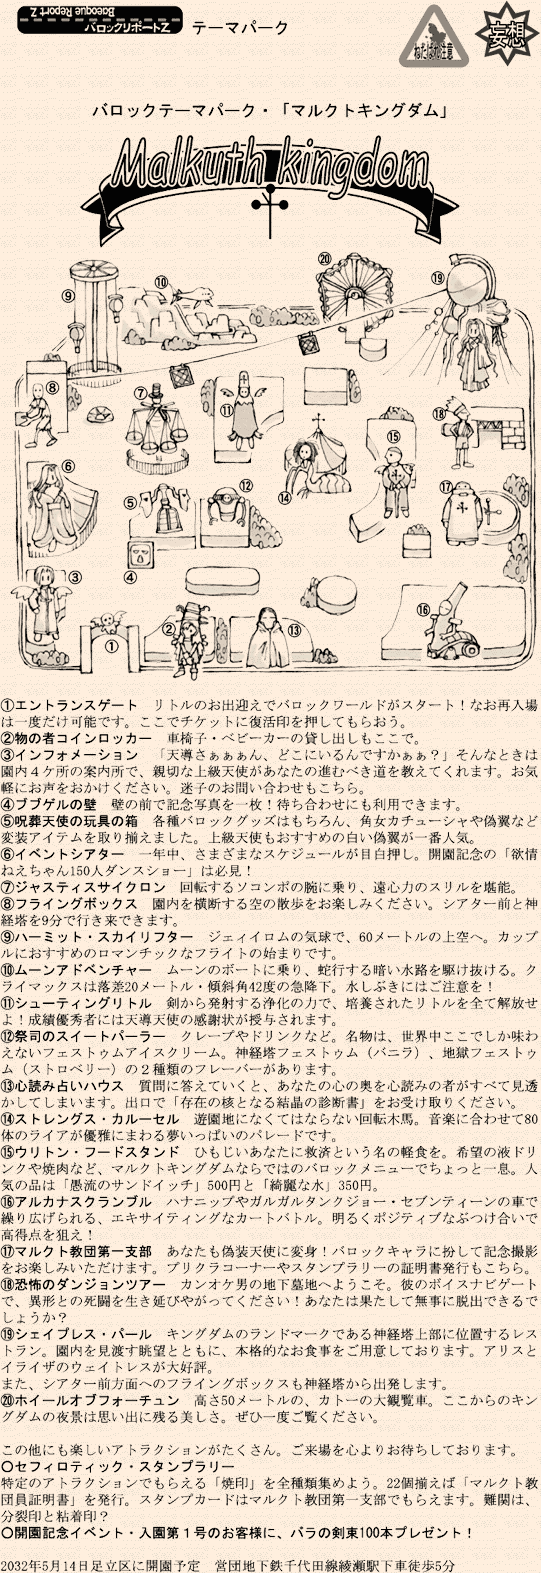 Baroque Report Z
バロックリポートZ
テーマパーク
ねたばれ注意
妄想
バロックテーマパーク・「マルクトキングダム」
Malkuth kingdom
⑨
⑩
⑳
⑲
⑧
⑦
⑪
⑮
⑱
⑥
⑤
⑫
⑭
⑰
③
④
①
②
⑬
⑯
①エントランスゲート　リトルのお出迎えでバロックワールドがスタート！なお再入場
は一度だけ可能です。ここでチケットに復活印を押してもらおう。
②物の者コインロッカー　車椅子・ベビーカーの貸し出しもここで。
③インフォメーション　「天導さぁぁぁん、どこにいるんですかぁぁ？」そんなときは
園内４ケ所の案内所で、親切な上級天使があなたの進むべき道を教えてくれます。お気
軽にお声をおかけください。迷子のお問い合わせもこちら。
④ブブゲルの壁　壁の前で記念写真を一枚！待ち合わせにも利用できます。
⑤呪葬天使の玩具の箱　各種バロックグッズはもちろん、角女カチューシャや偽翼など
変装アイテムを取り揃えました。上級天使もおすすめの白い偽翼が一番人気。
⑥イベントシアター　一年中、さまざまなスケジュールが目白押し。開園記念の「欲情
ねえちゃん150人ダンスショー」は必見！
⑦ジャスティスサイクロン　回転するソコンポの腕に乗り、遠心力のスリルを堪能。
⑧フライングボックス　園内を横断する空の散歩をお楽しみください。シアター前と神
経塔を9分で行き来できます。
⑨ハーミット・スカイリフター　ジェィイロムの気球で、60メートルの上空へ。カップ
ルにおすすめのロマンチックなフライトの始まりです。
⑩ムーンアドベンチャー　ムーンのボートに乗り、蛇行する暗い水路を駆け抜ける。ク
ライマックスは落差20メートル・傾斜角42度の急降下。水しぶきにはご注意を！
⑪シューティングリトル　剣から発射する浄化の力で、培養されたリトルを全て解放せ
よ！成績優秀者には天導天使の感謝状が授与されます。
⑫祭司のスイートパーラー　クレープやドリンクなど。名物は、世界中ここでしか味わ
えないフェストゥムアイスクリーム。神経塔フェストゥム（バニラ）、地獄フェストゥ
ム（ストロベリー）の２種類のフレーバーがあります。
⑬心読み占いハウス　質問に答えていくと、あなたの心の奥を心読みの者がすべて見透
かしてしまいます。出口で「存在の核となる結晶の診断書」をお受け取りください。
⑭ストレングス・カルーセル　遊園地になくてはならない回転木馬。音楽に合わせて80
体のライアが優雅にまわる夢いっぱいのパレードです。
⑮ウリトン・フードスタンド　ひもじいあなたに救済という名の軽食を。希望の液ドリ
ンクや焼肉など、マルクトキングダムならではのバロックメニューでちょっと一息。人
気の品は「愚流のサンドイッチ」500円と「綺麗な水」350円。
⑯アルカナスクランブル　ハナニップやガルガルタンクジョー・セブンティーンの車で
繰り広げられる、エキサイティングなカートバトル。明るくポジティブなぶつけ合いで
高得点を狙え！
⑰マルクト教団第一支部　あなたも偽装天使に変身！バロックキャラに扮して記念撮影
をお楽しみいただけます。プリクラコーナーやスタンプラリーの証明書発行もこちら。
⑱恐怖のダンジョンツアー　カンオケ男の地下墓地へようこそ。彼のボイスナビゲート
で、異形との死闘を生き延びやがってください！あなたは果たして無事に脱出できるで
しょうか？
⑲シェイプレス・パール　キングダムのランドマークである神経塔上部に位置するレス
トラン。園内を見渡す眺望とともに、本格的なお食事をご用意しております。アリスと
イライザのウェイトレスが大好評。
また、シアター前方面へのフライングボックスも神経塔から出発します。
⑳ホイールオブフォーチュン　高さ50メートルの、カトーの大観覧車。ここからのキン
グダムの夜景は思い出に残る美しさ。ぜひ一度ご覧ください。
この他にも楽しいアトラクションがたくさん。ご来場を心よりお待ちしております。
○セフィロティック・スタンプラリー
特定のアトラクションでもらえる「焼印」を全種類集めよう。22個揃えば「マルクト教
団員証明書」を発行。スタンプカードはマルクト教団第一支部でもらえます。難関は、
分裂印と粘着印？
○開園記念イベント・入園第１号のお客様に、バラの剣束100本プレゼント！
2032年5月14日足立区に開園予定　営団地下鉄千代田線綾瀬駅下車徒歩5分